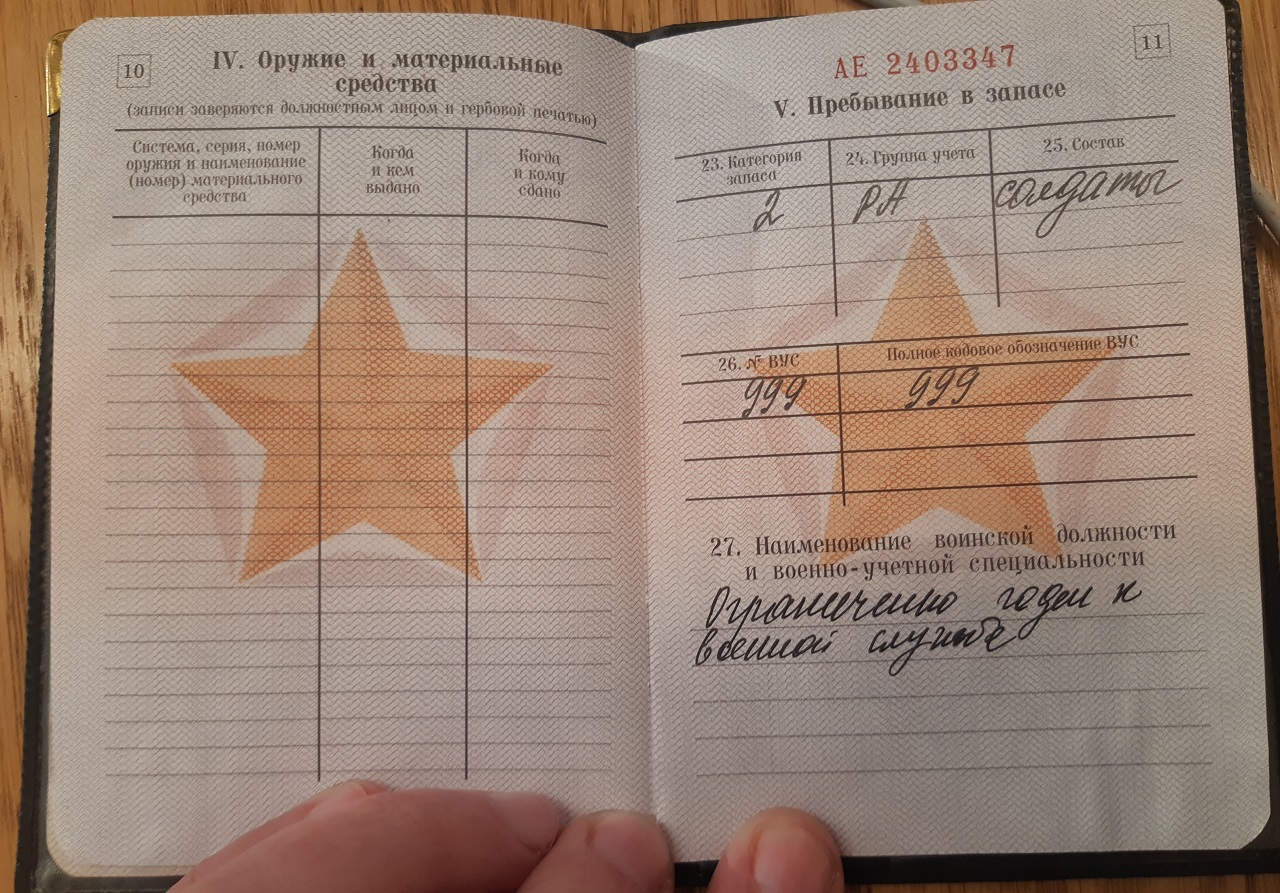 10
IV. Оружие и материальные
средства
(записи заверяются должностным лицом и гербовой печатью)
Система, серия, номер
оружия и наименование
(номер) материального
средства
Когда
и кем
выдано
Когда
и кому
сдано
11
АЕ 2403347
V. Пребывание в запасе
23. Категория
запаса
24. Группа учета
25. Состав
2
РА
солдаты
26. № ВУС
Полное кодовое обозначение ВУС
999
999
27. Наименование воинской должности
и военно-учетной специальности
Ограниченно годен к
военной службе